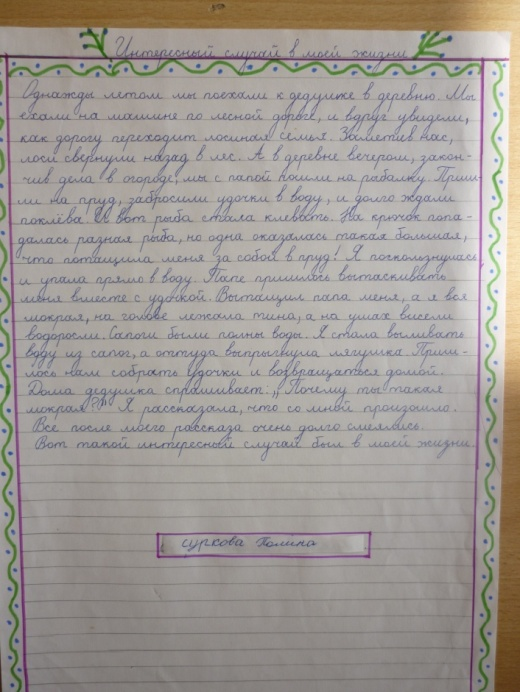 Интересный случай в моей жизни
Однажды летом мы поехали к дедушке в деревню. Мы
ехали на машине по лесной дороге, и вдруг увидели,
как дорогу переходит лосиная семья. Заметив нас,
лоси свернули назад в лес. А в деревне вечером, закон-
чив дела в огороде, мы с папой пошли на рыбалку. Приш-
ли на пруд, забросили удочки в воду, и долго ждали
поклёва. И вот рыба стала клевать. На крючок попа-
далась разная рыба, но одна оказалась такая большая,
что потащила меня за собой в пруд! Я поскользнулась
и упала прямо в воду. Папе пришлось вытаскивать
меня вместе с удочкой. Вытащил папа меня, а я вся
мокрая, на голове лежала тина, а на ушах висели
водоросли. Сапоги были полны воды. Я стала выливать
воду из сапог, а оттуда выпрыгнула лягушка. Приш-
лось нам собрать удочки и возвращаться домой.
Дома дедушка спрашивает: „Почему ты такая
мокрая?" Я рассказала, что со мной произошло.
Все после моего рассказа очень долго смеялись.
Вот такой интересный случай был в моей жизни.
Суркова Полина